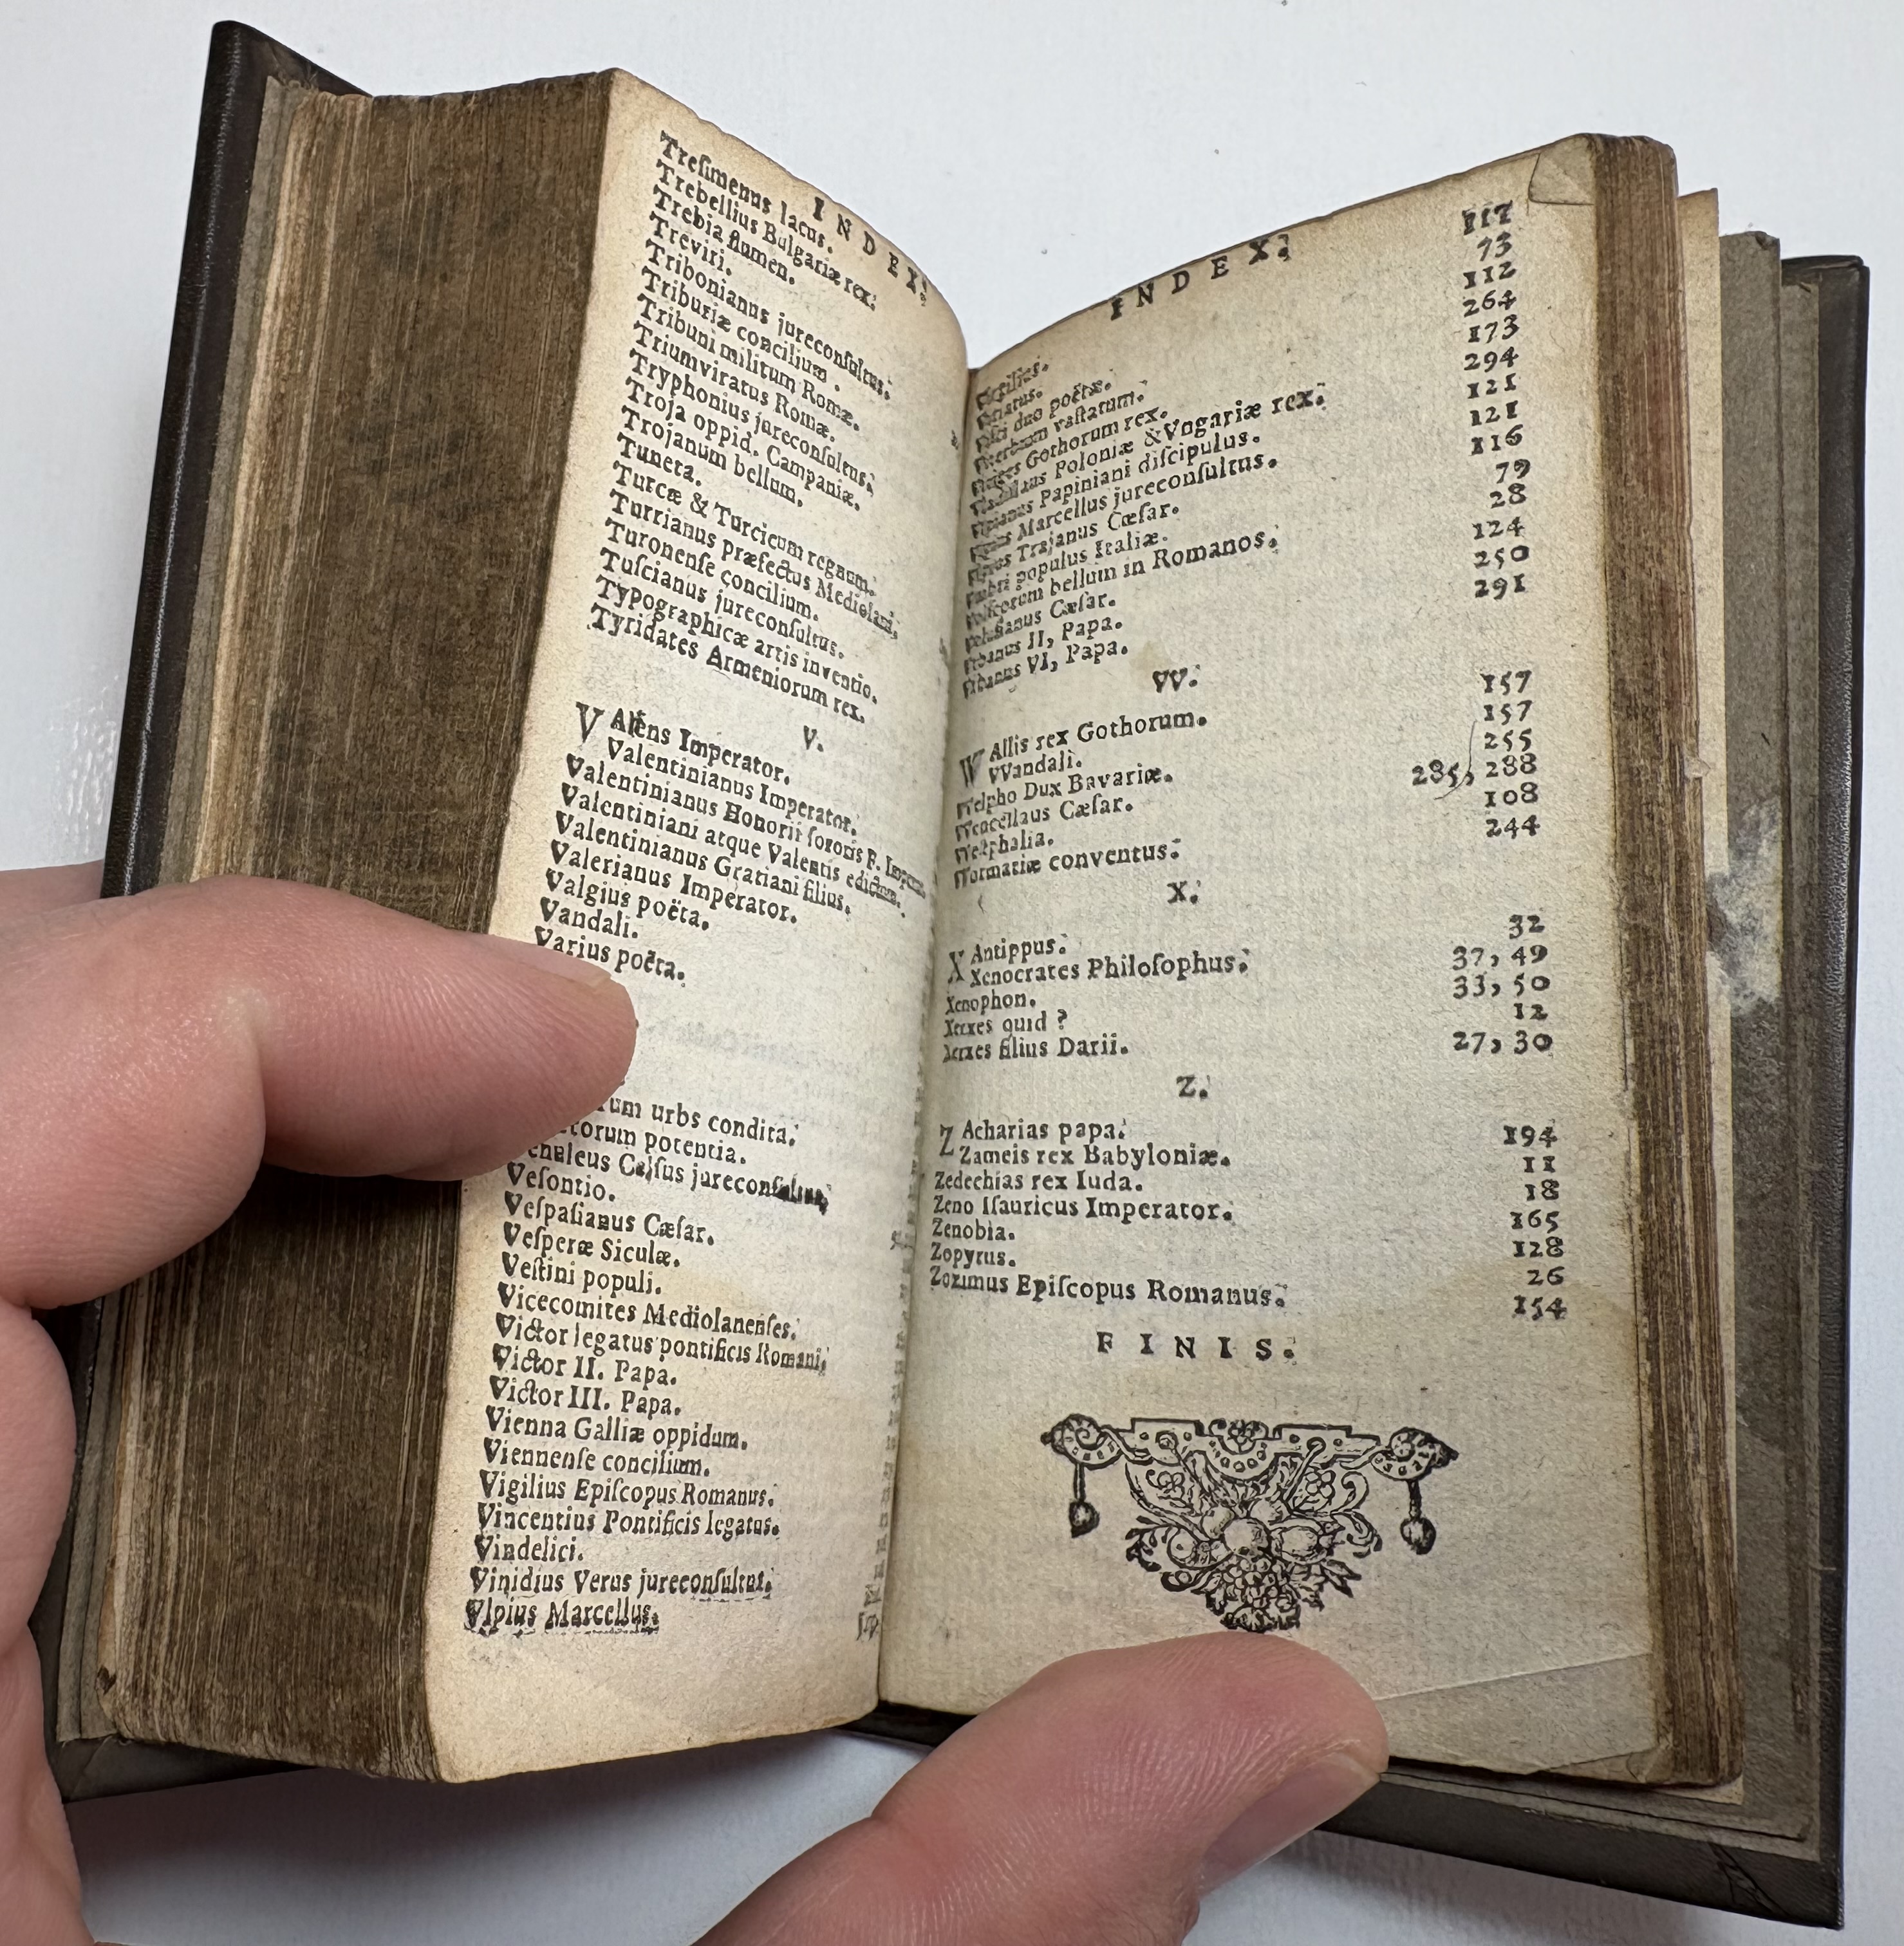 INDEX.
Tresimenus lacus.
Trebellius Bulgariæ rex.
Trebia flumen.
Treviri.
Tribonianus jureconſultus.
Triburiæ concilium.
Tribuni militum Romæ.
Triumviratus Romæ.
Tryphonius jureconſultus.
Troja oppid. Campaniæ.
Trojanum bellum.
Tuneta.
Turcæ & Turcicum regnum.
Turrianus præfectus Mediolani.
Turonenſe concilium.
Tuſcianus jureconſultus.
Typographicæ artis inventio.
Tyridates Armeniorum rex.
V.
VAlens Imperator.
Valentinianus Imperator.
Valentinianus Honorii ſororis F. Imper.
Valentiniani atque Valentis edictum.
Valentinianus Gratiani filius.
Valerianus Imperator.
Valgius poëta.
Vandali.
Varius poëta.
urbs condita.
potentia.
jureconſultus.
Veſontio.
Veſpaſianus Cæſar.
Veſperæ Siculæ.
Veſtini populi.
Vicecomites Mediolanenſes.
Victor legatus pontificis Romani.
Victor II. Papa.
Victor III. Papa.
Vienna Galliæ oppidum.
Viennenſe concilium.
Vigilius Epiſcopus Romanus.
Vincentius Pontificis legatus.
Vindelici.
Vinidius Verus jureconſultus.
Vlpius Marcellus.
INDEX.
117
duo poëtæ. 73
vaſtatum. 112
Gothorum rex. 264
Poloniæ & Vngariæ rex. 173
Papiniani diſcipulus. 294
Marcellus jureconſultus. 121
Trajanus Cæſar. 121
populus Italiæ. 116
bellum in Romanos. 79
28
Cæſar. 124
Vrbanus II, Papa. 250
Vrbanus VI, Papa. 291
VV.
WAllis rex Gothorum. 157
VVandali. 157
Welpho Dux Bavariæ. 255
Wenceſlaus Cæſar. 285, 288
Weſtphalia. 108
Wormatiæ conventus. 244
X.
XAntippus. 32
Xenocrates Philoſophus. 37, 49
Xenophon. 33, 50
Xerxes quid? 12
Xerxes filius Darii. 27, 30
Z.
ZAcharias papa. 194
Zameis rex Babyloniæ. 11
Zedechias rex Iuda. 18
Zeno Iſauricus Imperator. 165
Zenobia. 128
Zopyrus. 26
Zozimus Epiſcopus Romanus. 154
FINIS.